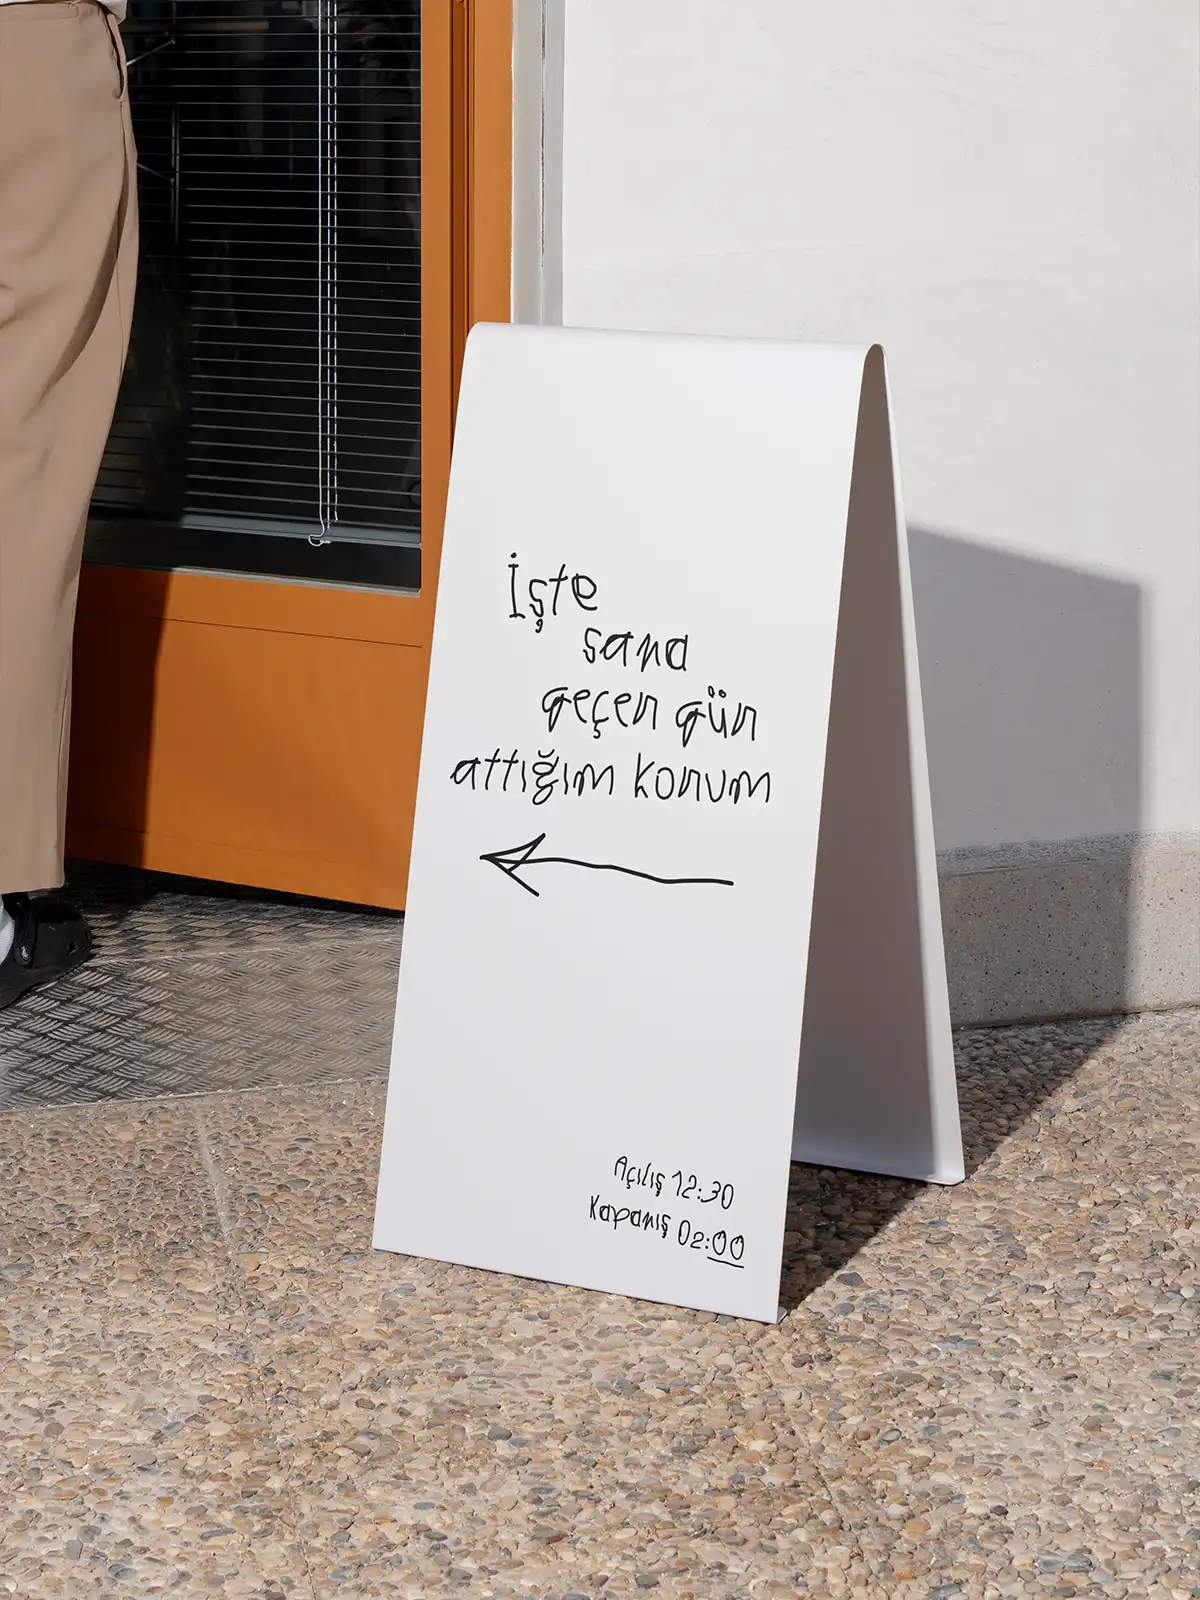 İşte
sana
geçen gün
attığım konum
Açılış 12:30
Kapanış 02:00